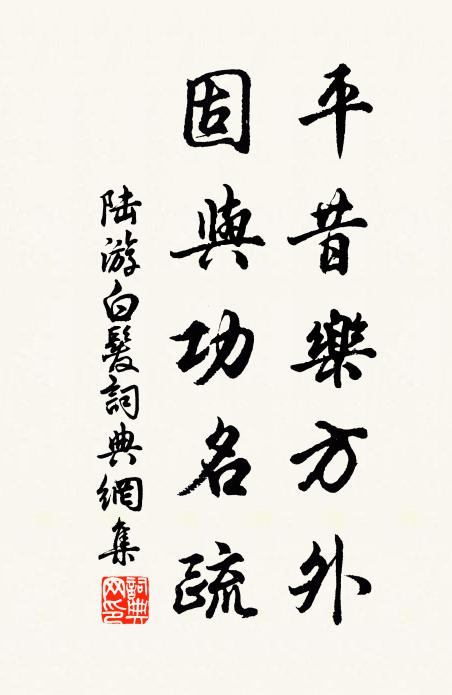 平昔樂方外
固與功名疏
陸游白髮詞典網集
詞典网印